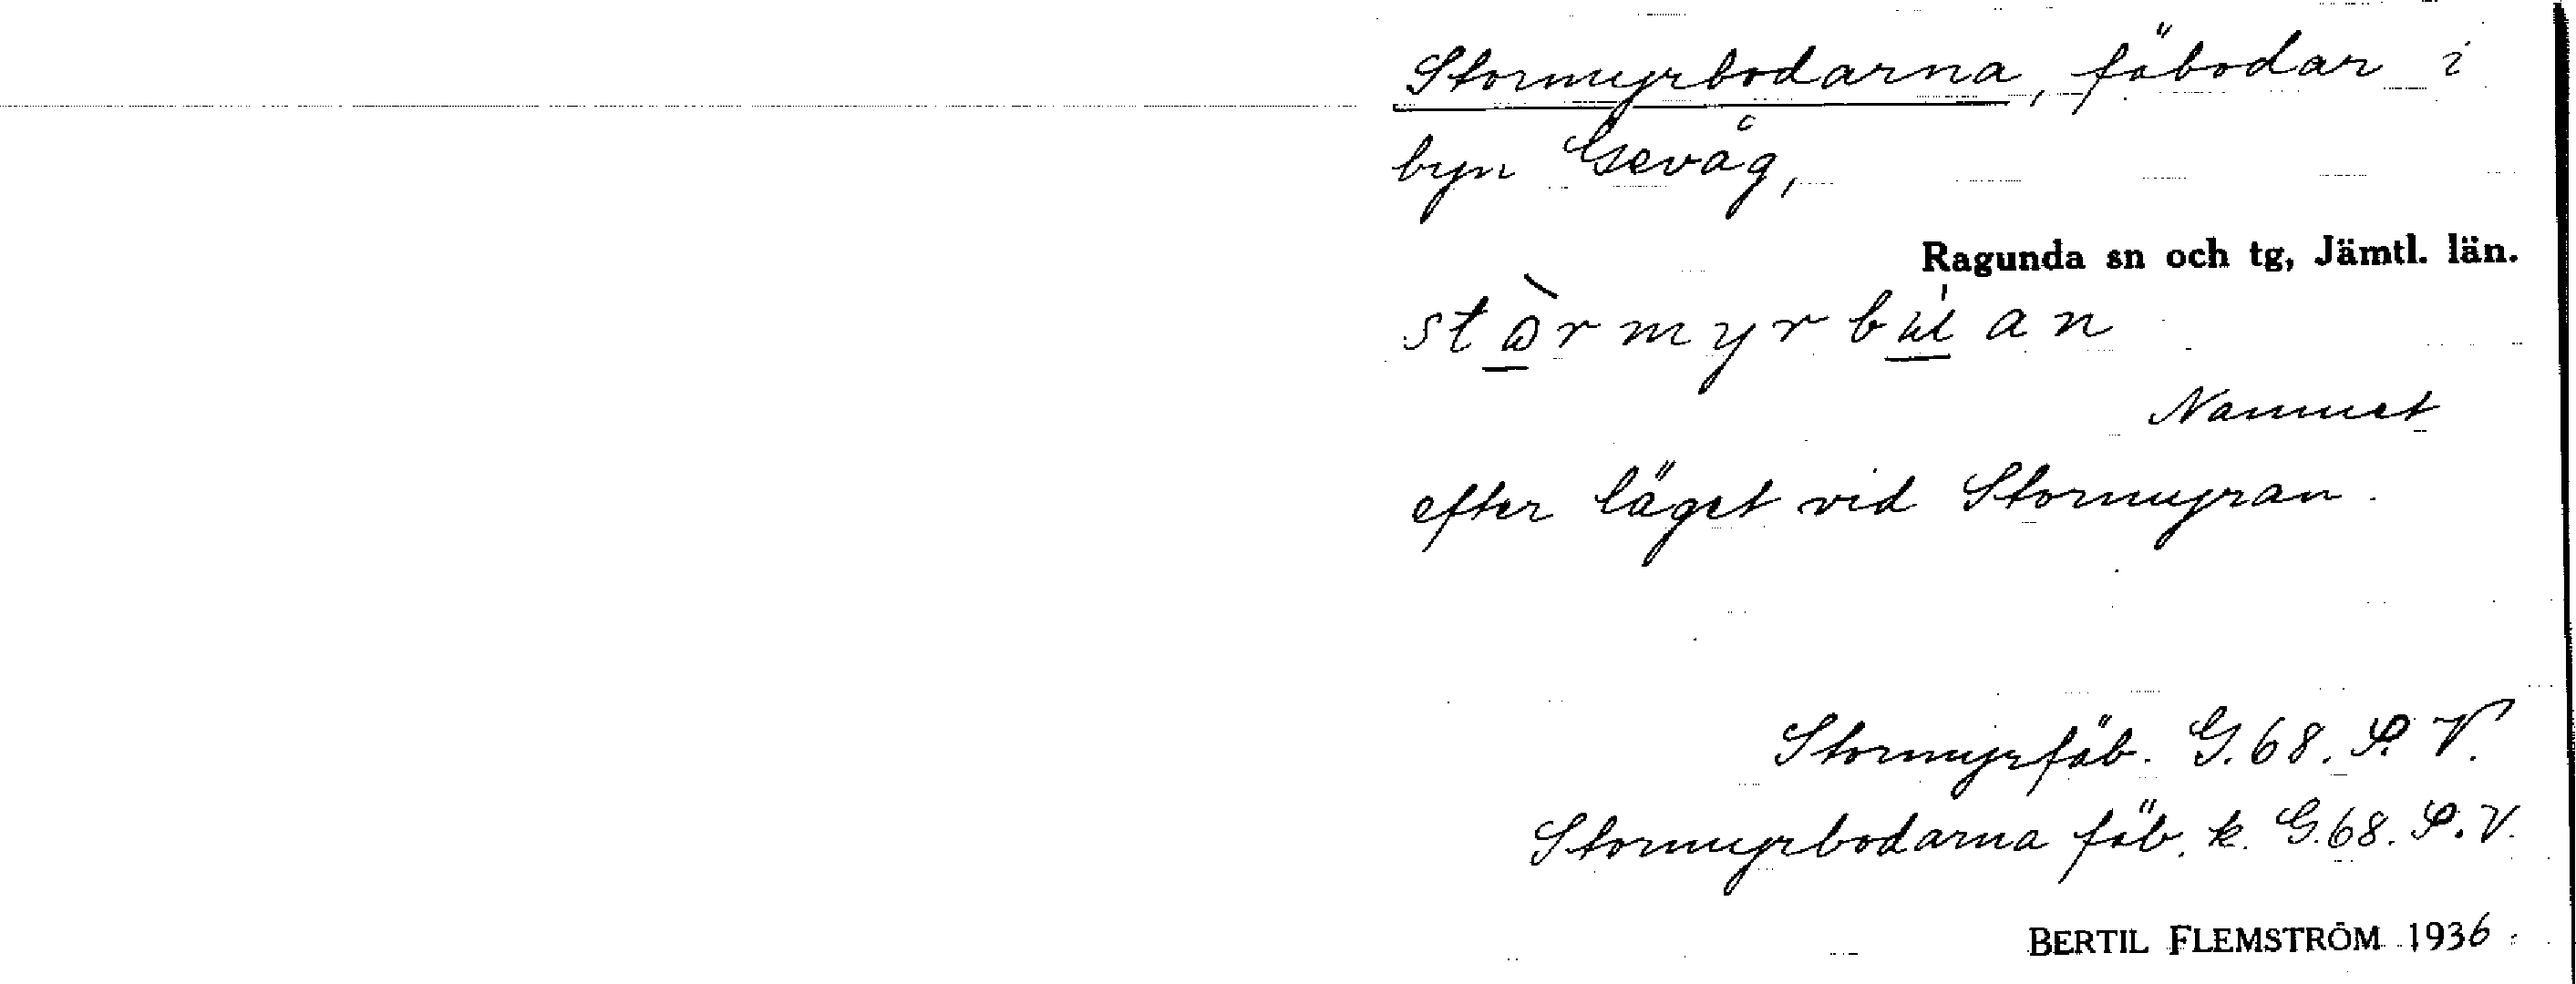 Stormyrbodarna, fäbodar i
byn Gevåg,
Ragunda sn och tg, Jämtl. län.
Namnet
efter läget vid Stormyran.
Stormyrfäb. G. 68. S. V.
Stormyrbodarna fäb. k. G. 68. S. V.
BERTIL FLEMSTRÖM 1936